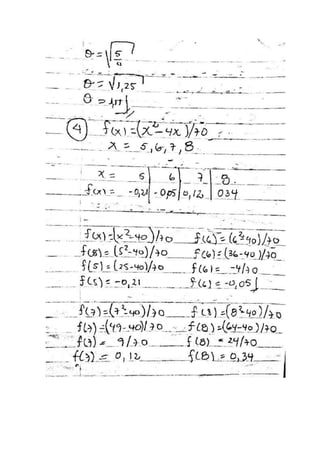 θ = √5/4
θ = √1,25
θ = 1,11
④ f(x) = (x² - 4x)/70
x = 5, 6, 7, 8
x = 5 6 7 8
f(x) = -0,21 -0,05 0,12 034
f(x) = (x² - 40)/70 f(6) = (6² - 40)/70
f(8) = (5² - 40)/70 f(6) = (36 - 40)/70
f(5) = (25 - 40)/70 f(6) = -4/70
f(5) = -0,21 f(6) = -0,05
f(7) = (7² - 40)/70 f(8) = (8² - 40)/70
f(7) = (49 - 40)/70 f(8) = (64 - 40)/70
f(7) = 9/70 f(8) = 24/70
f(7) = 0,12 f(8) = 0,34